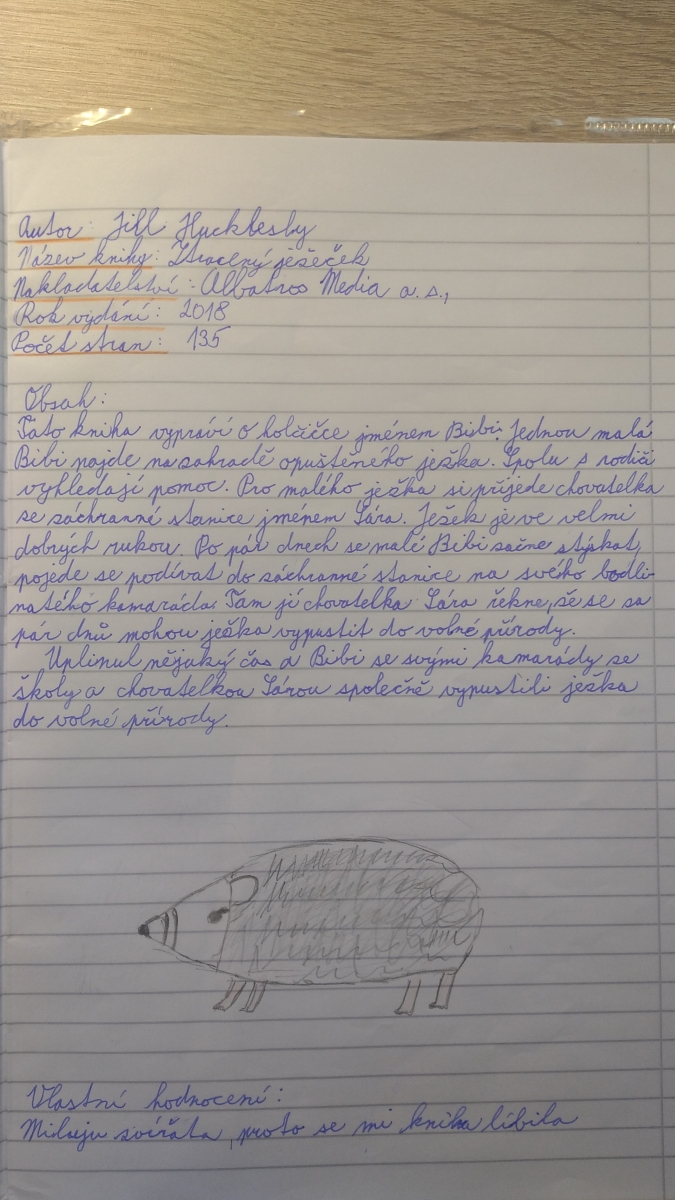 Autor: Jill Hucklesby
Název knihy: Ztracený ježeček
Nakladatelství: Albatros Media a.s.,
Rok vydání: 2018
Počet stran: 135
Obsah:
Tato kniha vypráví o holčičce jménem Bibi. Jednou malá
Bibi najde na zahradě opuštěného ježka. Spolu s rodiči
vyhledají pomoc. Pro malého ježka si přijede chovatelka
ze záchranné stanice jménem Sára. Ježek je ve velmi
dobrých rukou. Po pár dnech se malé Bibi začne stýskat,
pojede se podívat do záchranné stanice na svého bodli-
natého kamaráda. Tam jí chovatelka Sára řekne, že se za
pár dnů mohou ježka vypustit do volné přírody.
Uplinul nějaký čas a Bibi se svými kamarády ze
školy a chovatelkou Sárou společně vypustili ježka
do volné přírody.
Vlastní hodnocení:
Miluju zvířata, proto se mi kniha líbila